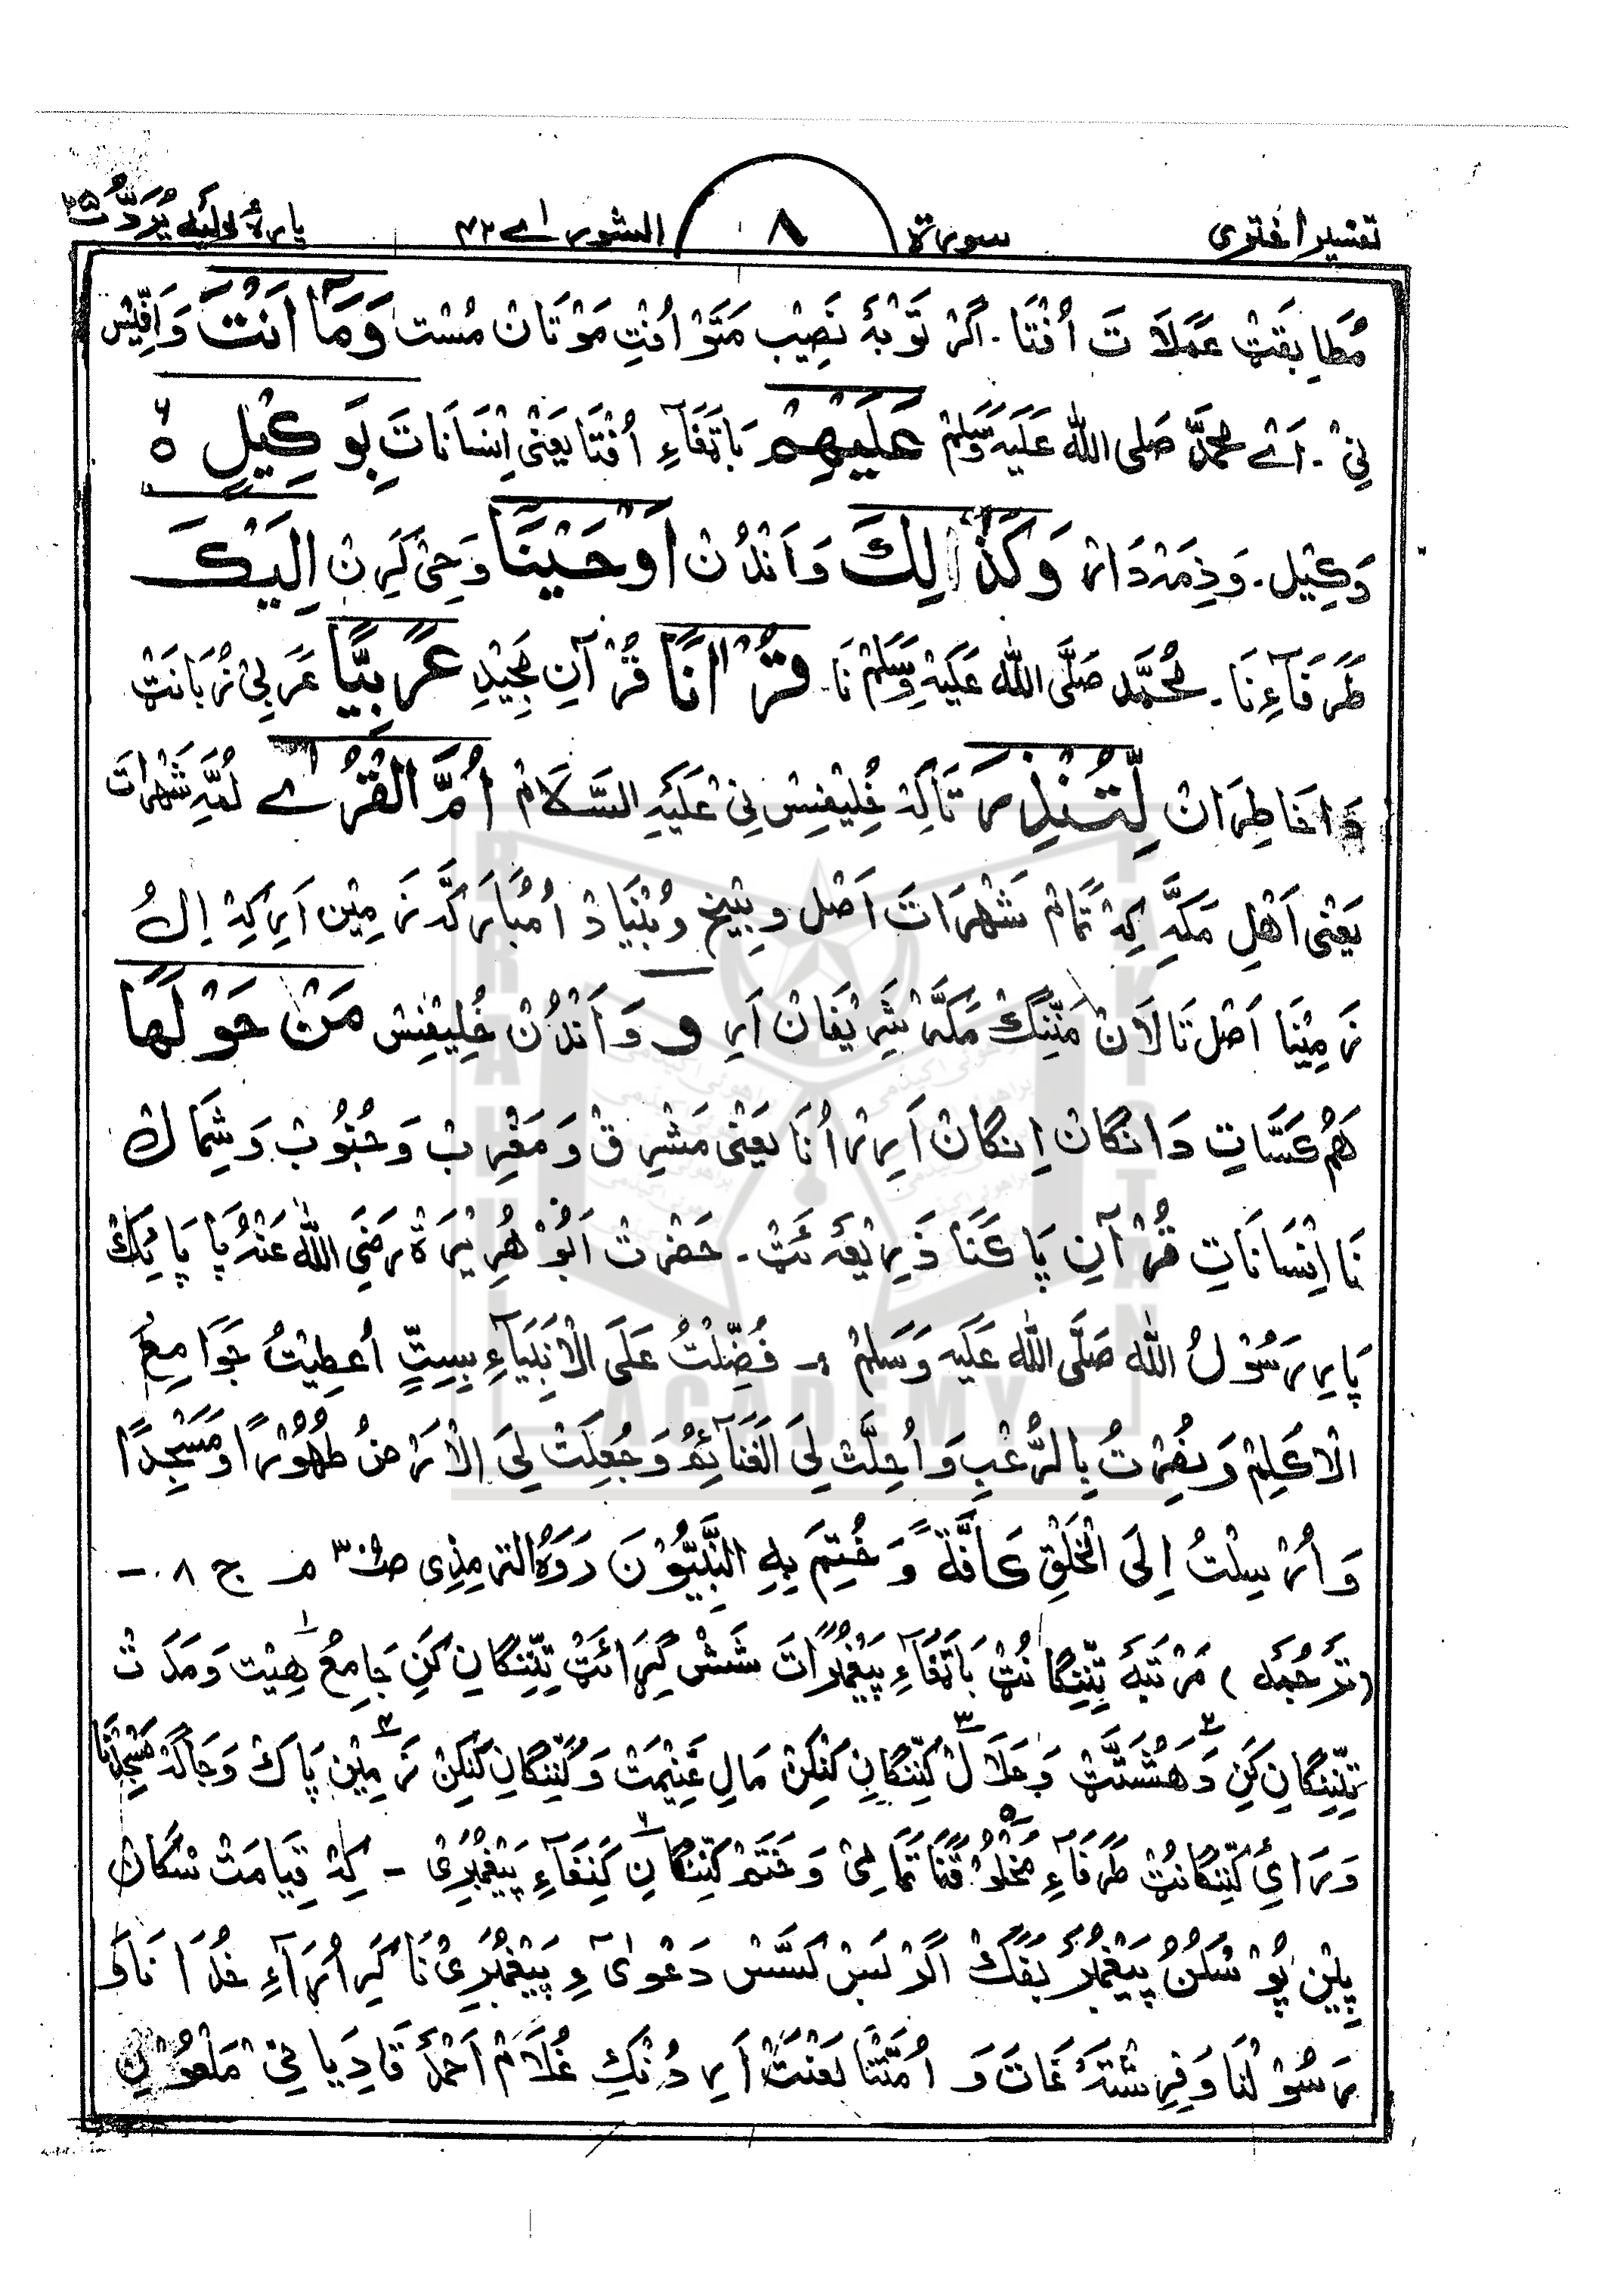 تفسیر اختری سورة ۸ الشورٰے ۴۲ پارۀ اِلَیْهِ یُرَدُّ ۲۵
مُطَابِقَتْ عَمَلَاتَ اُفْتَا۔ اَگر تَوْبَهٔ نَصِیْب مَتَوْ اُفْتِ مَوْتَانْ مُسْت وَمَآ اَنْتَ وَ اَفِّیْس
نِیْ۔ اَے مُحَمَّدْ صَلی اللّٰه عَلَیْهِ وَسَلَّمْ عَلَیْهِمْ بَاتَغَآءِ اُفْتَا یَعْنٰی اِنْسَانَاتَ بِوَکِیْلٍ ۶ ه
وَکِیْل۔ وَذِمَّه دَار وَکَذٰالِكَ وَاَنْدُنْ اَوْحَیْنَا وَحِیْ کَرِنْ اِلَیْكَ
طَرَفَآءِ نَا۔ مُحَمَّد صَلَّی اللّٰه عَلَیْهِ وَسَلَّمْ نَا۔ قُرْاٰنًا قُرْآنِ مَجِیْدِ عَرَبِیًّا عَرَبِیْ زُبَانَتْ
وَاخَاطِرَانْ لِّتُنْذِرَ تَاکِهْ خُلِیْفِسْ نِیْ عَلَیْهِ السَّلَامْ اُمَّ الْقُرٰے لُمَّه شَهْرَاتَ
یَعْنٰی اَهْلِ مَکَّه کِهْ تَمَامْ شَهْرَاتَ اَصْل وبِیْخ وبُنْیَاد اُمُبَارَکَّه زَمِیْن اَرِ کِهْ اِلُ
زَمِیْنَا اَصْل تَالَانْ مَنِّنْگ مَکَّه شَرِیْفَانْ اَرِ و وَاَنْدُنْ خُلِیْفِس مَنْ حَوْلَهَا
هَمْ کَسَّاتِ دَانْگَان اِنْگَانْ اَرِرْ اُنَا یَعْنٰی مَشْرِقْ وَمَغْرِبْ وَجُنُوْب وَشِمَالْ
نَا اِنْسَانَاتِ قُرْآنِ پَاکَنَا ذَرِیْعَهٔ ئَتْ۔ حَضْرَتْ اَبُوْهُرِیْرَةْ رَضَی اللّٰه عَنْهُ پَا پَائِکْ
پَارِ رَسُوْلُ اللّٰه صَلَّی اللّٰه عَلَیْه وَسَلَمْ :۔ فُضِّلْتُ عَلَی الْاَنْبِیَآءِ بِسِتٍّ اُعْطِیْتُ جَوَامِعَ
الْاکَلِمْ وَنُصِرْتُ بِالرُّعْبِ وَاُحِلَّتْ لِیَ الْغَنَآئِمُ وَجُعِلَتْ لِیَ الْاَرْضُ طُهُوْرًا وَّمَسْجِدًا
وَاُرْسِلْتُ اِلَی الْخَلْقِ کَافَّةً وَّخُتِمَ بِهِ النَّبِیُّوْنَ رَوَاهُ الترمذِی ج ۸۔۔
(تَرجُمَه) مَرْتَبَهٔ تِنِنْگَانُٹ بَاتَغَآءِ پَیْغَمْبَرَاتَ شَشْ گِرَائَتْ تِنِنْگَانِ کَنِ جَامِعْ ۱ هِیْت وَمَدَثْ
تِنِنْگَانِ کَنِ دَهْشَتَّتْ ۲ وَحَلَالْ ۳ کَنِنْگَانِ کَنْکِنْ مَالِ غَنِیْمَتْ وَکَنِنْگَانِ کَنْکِنْ ۴ زَمِیْن پَاکْ وَجَاگَهْ مَسْجِدَانَا
وَرَاءِیْ کَنِنْگَانُٹ طَرَفَآءِ ۵ مَخْلُوْقَنَا تَمَامِیْ وَخَتَمْ کَنِنْگَانِ ۶ کَنِغَآءِ پَیْغَمْبَرِیْ ۔ کِهْ قِیَامَتْ سْکَان
پِیْن پُوْسْکُنُ پَیْغَمْبَرْ بَفَکْ اَگر بَسْ کَسَّس دَعْوٰیءِ پَیْغَمْبَرِیْ نَا کَرِ اُرَآءِ خُدَا نَا وَ
رَسُوْلُنَا وَفِرِشْتَهٔ غَاتَ وَ اُمَّتْنَا لَعْنَتْ اَرِ دُنْکِ غُلَامْ اَحْمَدْ قَادِیَانِیْ مَلْعُوْنِ